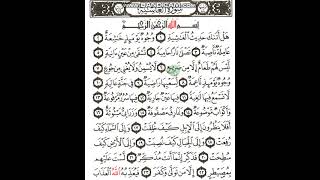 سُورَةُ الْغَاشِيَةِ
بِسْمِ اللَّهِ الرَّحْمَٰنِ الرَّحِيمِ
هَلْ أَتَىٰكَ حَدِيثُ الْغَٰشِيَةِ ١ وُجُوهٌ يَوْمَئِذٍ خَٰشِعَةٌ ٢
عَامِلَةٌ نَّاصِبَةٌ ٣ تَصْلَىٰ نَارًا حَامِيَةً ٤ تُسْقَىٰ مِنْ عَيْنٍ ءَانِيَةٍ ٥
لَّيْسَ لَهُمْ طَعَامٌ إِلَّا مِن ضَرِيعٍ ٦ لَّا يُسْمِنُ وَلَا يُغْنِي مِن جُوعٍ ٧
وُجُوهٌ يَوْمَئِذٍ نَّاعِمَةٌ ٨ لِّسَعْيِهَا رَاضِيَةٌ ٩ فِي جَنَّةٍ عَالِيَةٍ ١٠
لَّا تَسْمَعُ فِيهَا لَٰغِيَةً ١١ فِيهَا عَيْنٌ جَارِيَةٌ ١٢ فِيهَا سُرُرٌ مَّرْفُوعَةٌ ١٣
وَأَكْوَابٌ مَّوْضُوعَةٌ ١٤ وَنَمَارِقُ مَصْفُوفَةٌ ١٥ وَزَرَابِيُّ مَبْثُوثَةٌ ١٦
أَفَلَا يَنظُرُونَ إِلَى الْإِبِلِ كَيْفَ خُلِقَتْ ١٧ وَإِلَى السَّمَآءِ كَيْفَ
رُفِعَتْ ١٨ وَإِلَى الْجِبَالِ كَيْفَ نُصِبَتْ ١٩ وَإِلَى الْأَرْضِ كَيْفَ
سُطِحَتْ ٢٠ فَذَكِّرْ إِنَّمَآ أَنتَ مُذَكِّرٌ ٢١ لَّسْتَ عَلَيْهِم
بِمُصَيْطِرٍ ٢٢ إِلَّا مَن تَوَلَّىٰ وَكَفَرَ ٢٣ فَيُعَذِّبُهُ اللَّهُ الْعَذَابَ